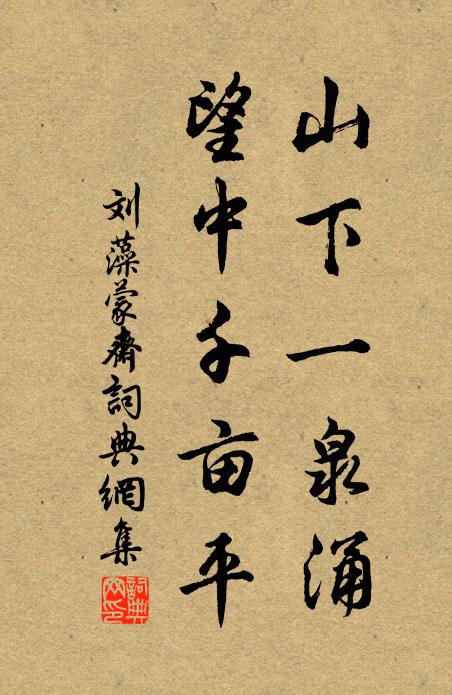 山下一泉涌
望中千亩平
刘藻蒙齋詞典網集
詞典网印